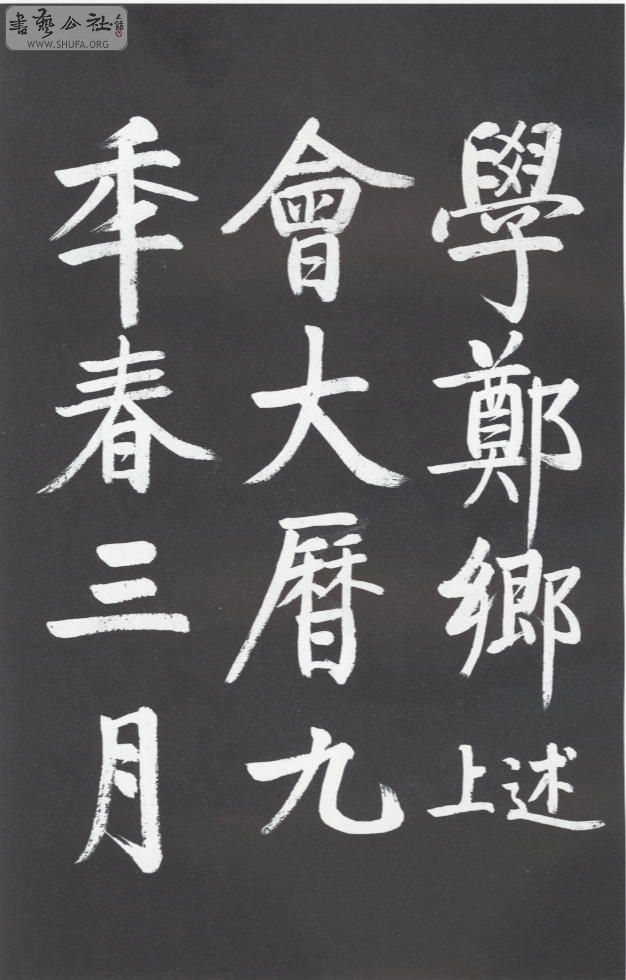 書藝公社
WWW.SHUFA.ORG
學鄭鄉述上
會大曆九
年春三月